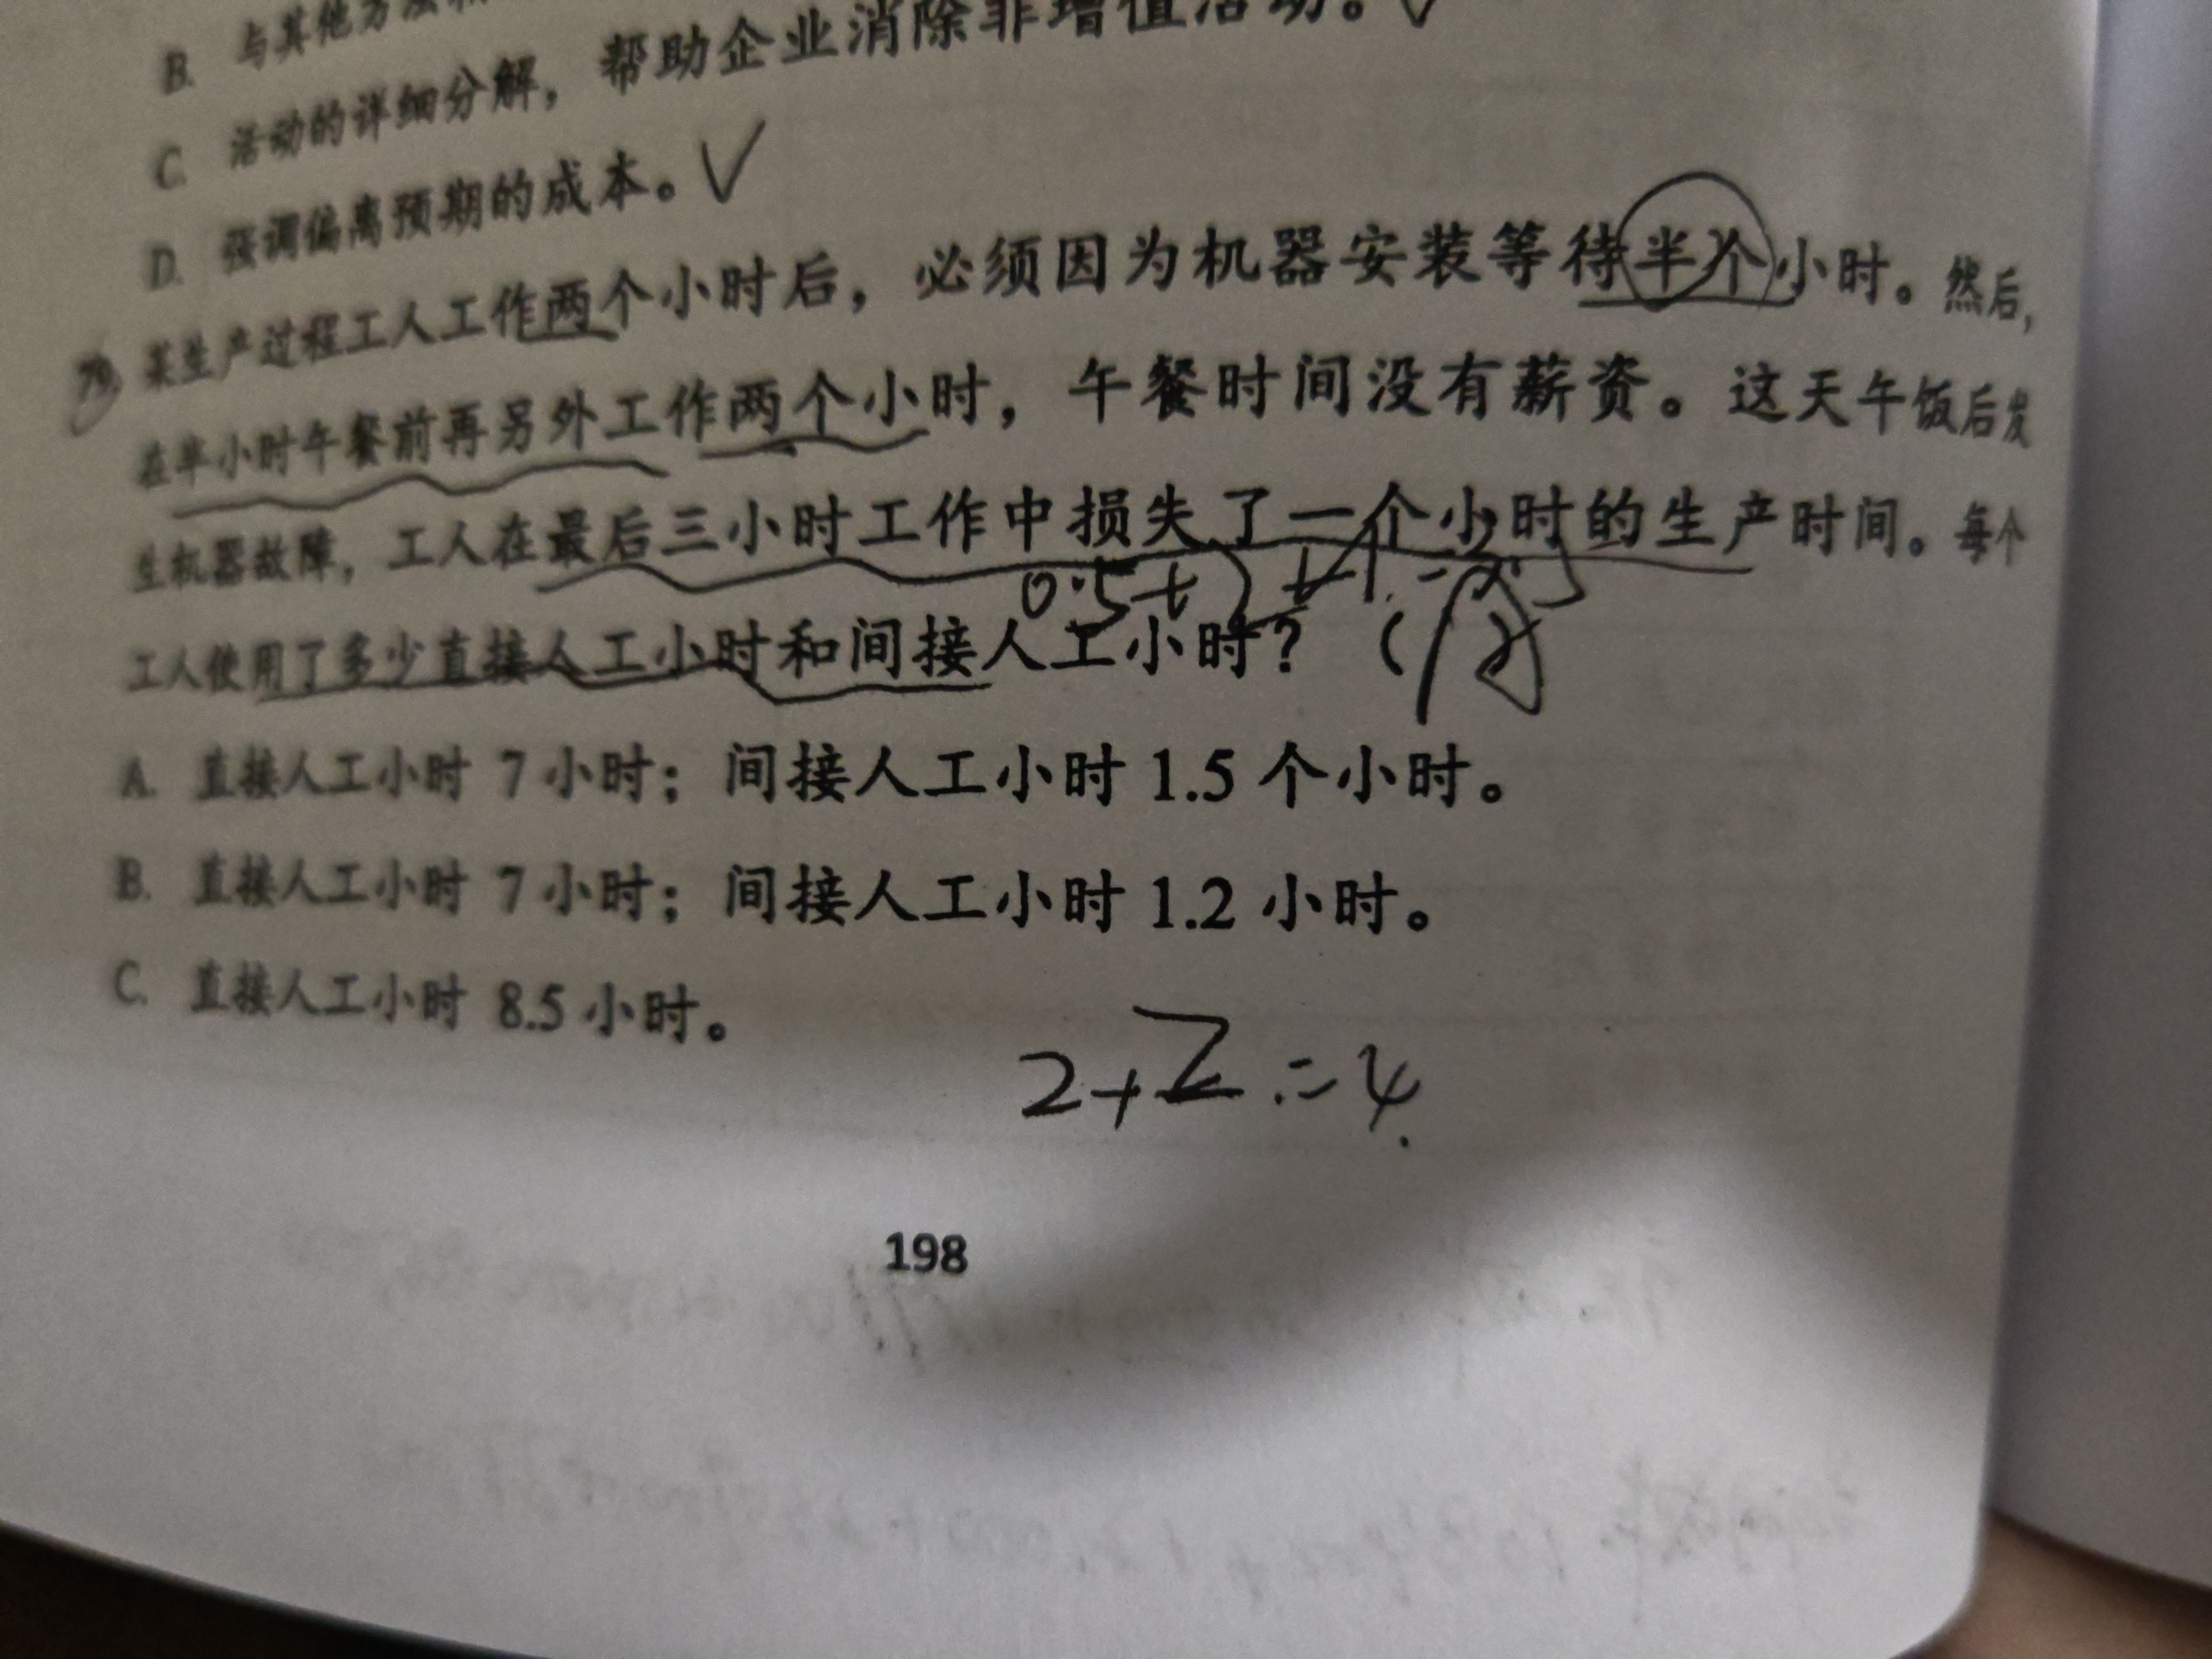 B. 与其他方法
C. 活动的详细分解，帮助企业消除非增值活动。√
D. 强调偏离预期的成本。√
79. 某生产过程工人工作两个小时后，必须因为机器安装等待半个小时。然后，
在半小时午餐前再另外工作两个小时，午餐时间没有薪资。这天午饭后发
生机器故障，工人在最后三小时工作中损失了一个小时的生产时间。每个
工人使用了多少直接人工小时和间接人工小时？（
A. 直接人工小时 7 小时；间接人工小时 1.5 个小时。
B. 直接人工小时 7 小时；间接人工小时 1.2 小时。
C. 直接人工小时 8.5 小时。
2+2=4.
198